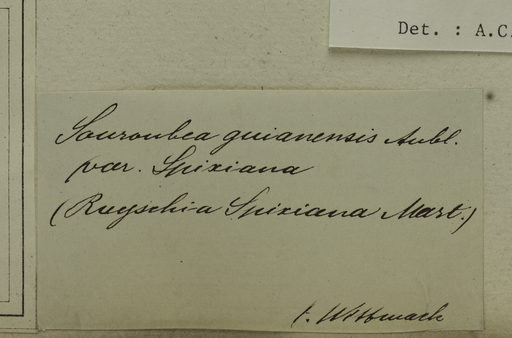 Det. : A.C.
Souroubea guianensis Aubl.
var. Spixiana
(Ruyschia Spixiana Mart.)
t. Wittmack